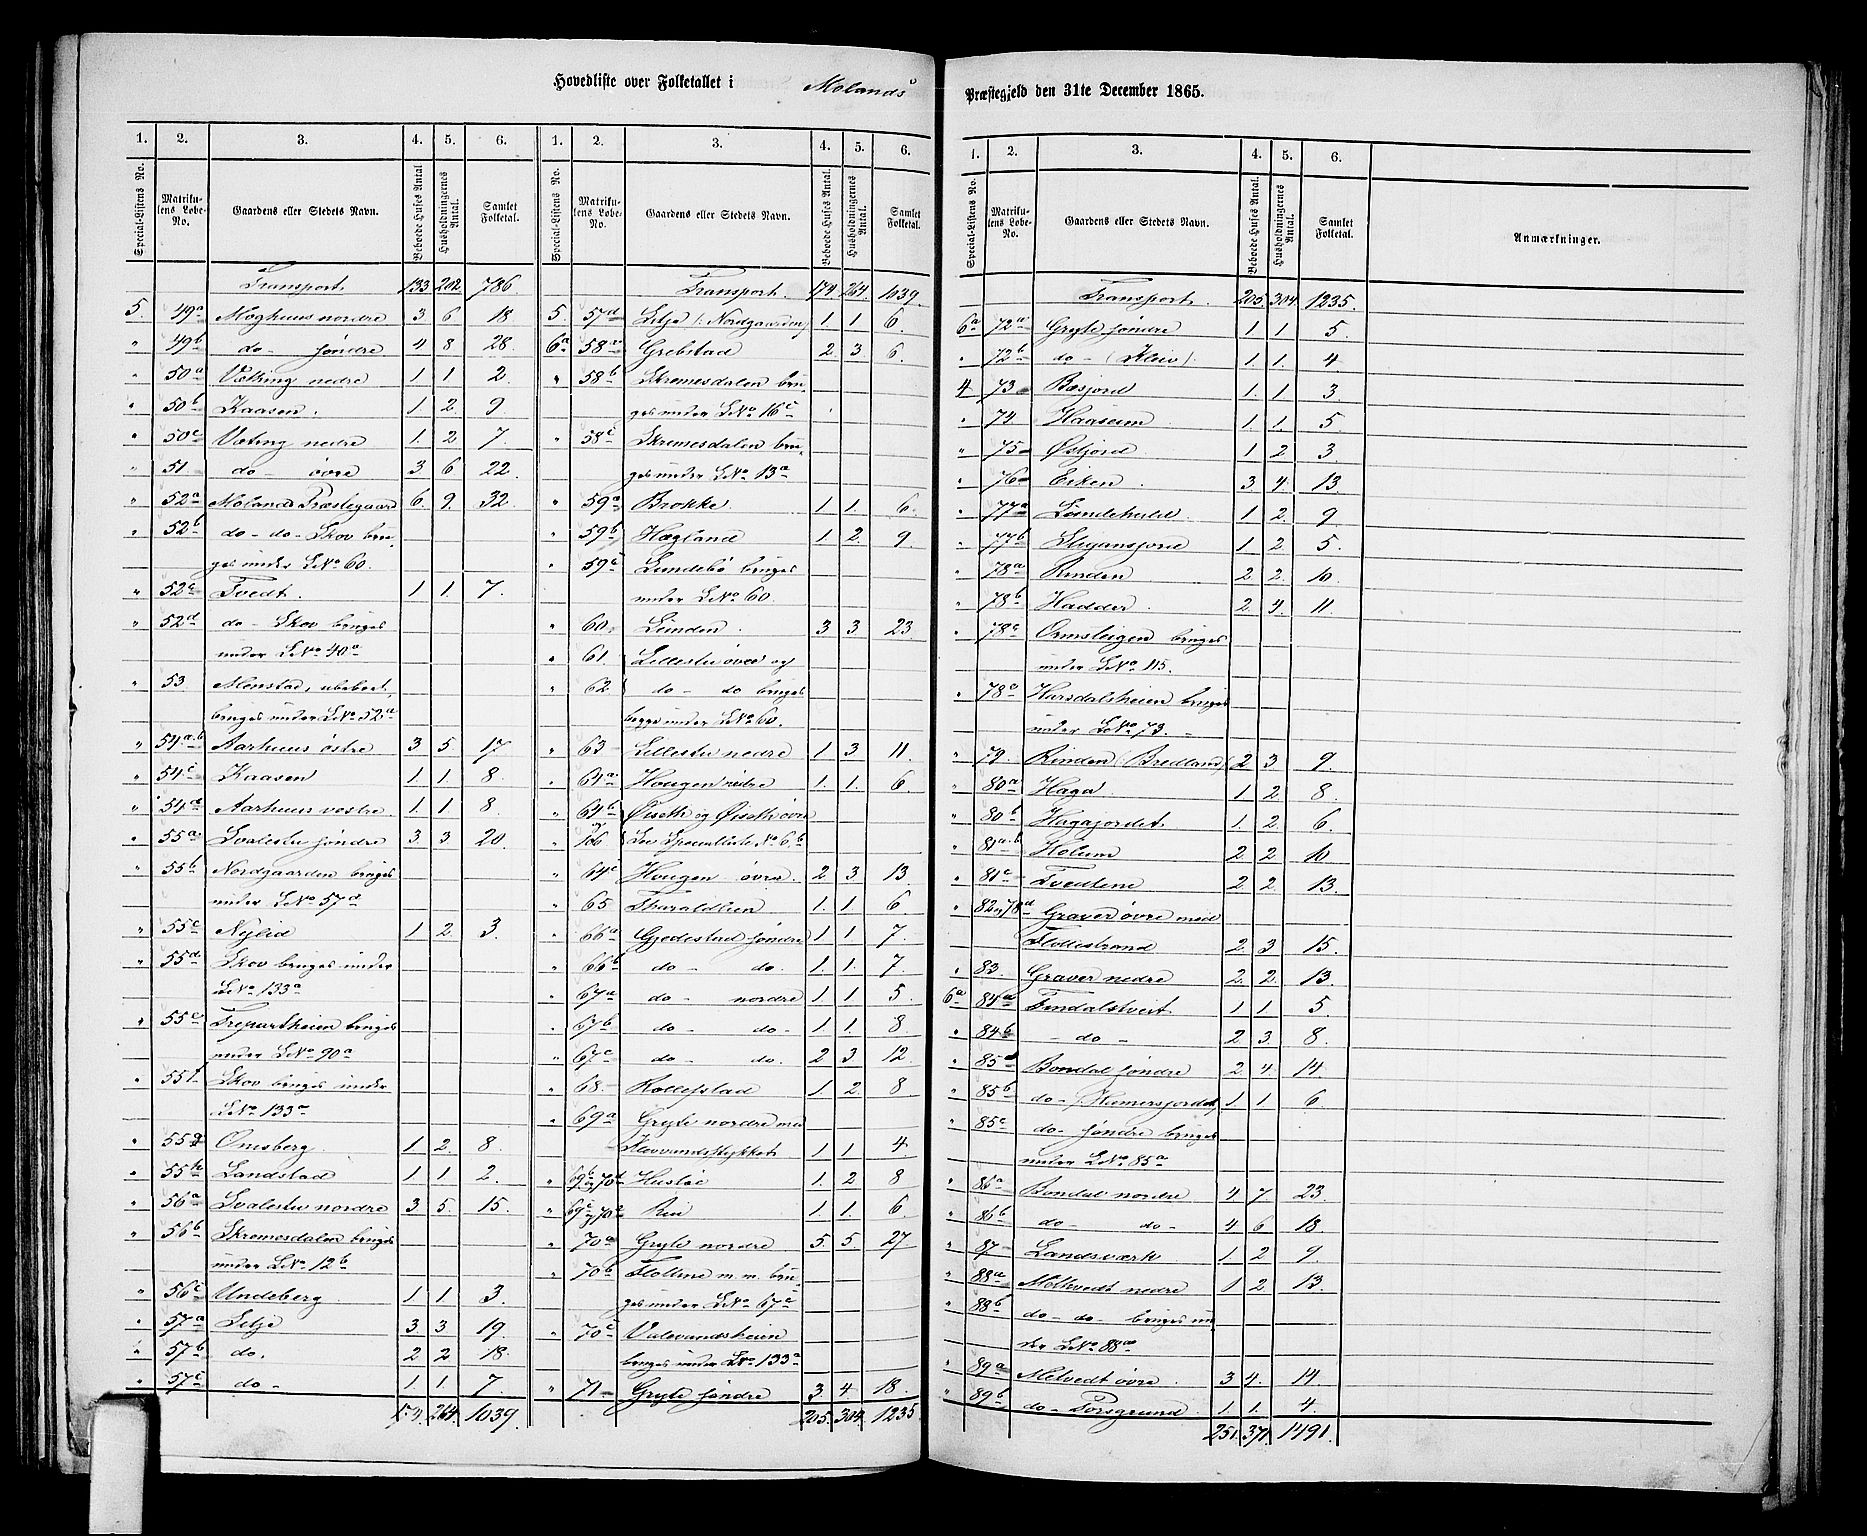 Hovedliste over Folketallet i Molands
Præstegjeld den 31te December 1865.
1. 2. 3. 4. 5. 6.
Special-Listens No. Matrikulens Løbe-No. Gaardens eller Stedets Navn. Beboede Huses Antal Husholdningernes Antal. Samlet Folketal.
Transport. 133 202 786
5. 49a Moghuus nordre 3 6 18
" 49b do søndre 4 8 28
" 50a Vætting nedre 1 1 2
" 50b Kaasen. 1 2 9
" 50c Væting nedre 1. 2 7
" 51. do øvre 3 6 22
" 52a Molands Præstegaard 6. 9. 32
" 52b do- do- Skov bru-
ges under L.No 60.
" 52c Tvedt. 1 1. 7
" 52d do- Skov bruges
under L.No 40a
" 53 Menstad, ubeboet,
bruges under L.No 52a
" 54a.b Aarhuus østre 3 5 17
" 54c Kaasen 1 1. 8
" 54d Aarhuus vestre 1. 1 8
" 55a Svalestu søndre 3. 3. 20
" 55b Nordgaarden bruges
under L.No 57d
" 55c Nylid 1 2. 3.
" 55d Skov bruges under
L.No 133a
" 55e Trepartheien bruges
under L.No 90a
" 55f Skov bruges under
L.No 133a
" 55g Omsberg 1 2. 8
" 55h Landstad 1 1 2.
" 56a Svalestu nordre 3. 5. 15.
" 56b Skremesdalen bruges
under L.No 12b
" 56c Undeberg 1 1 3.
" 57a Lilje 3. 3 19.
" 57b do. 2 2 18.
" 57c do- 1 1. 7
174. 264. 1039.
1. 2. 3. 4. 5. 6.
Special-Listens No. Matrikulens Løbe-No. Gaardens eller Stedets Navn. Beboede Huses Antal. Husholdningernes Antal. Samlet Folketal.
Transport. 174. 264. 1039.
5. 57d Lilje (: Nordgaarden) 1. 1 6.
6a 58a Grebstad 2. 3. 6.
" 58b Skremesdalen bru-
ges under L.No 16c
" 58c Skremesdalen bru-
ges under L.No 13a
" 59a Brokke. 1 1. 6.
" 59b Hægland 1. 2. 9.
" 59c Lundebø bruges
under L.No 60.
" 60. Lunden. 3 3. 23.
" 61. Lillestu øvre og
" 62. do- do bruges
begge under L.No 60.
" 63 Lillestu nedre 1 3 11.
" 64a. Hougen nedre 1. 1. 6
" 64b Øiseth og Øiseth øvre
106 See Specialliste No 6.b
" 64c Hougen øvre. 2 3 13
" 65. Tharaldlien 1. 1. 6
" 66a Gjedestad søndre 1 1 7.
" 66b do- do. 1. 1. 7
" 67a do- nordre 1. 1 5.
" 67b do- do- 1. 1. 8
" 67c do- do. 2 3 12
" 68. Rollefstad 1. 2. 8
" 69a Gryte nordre med
Klovvandsstykket 1 1 4
" 69b og 70d Hustøe 1. 2 8
" 69c og 70e Rui 1 1. 6
" 70a Gryte nordre 5. 5. 27
" 70b Flottene m. m. bru-
ges under L.No 67c
" 70c Valevandsheien
bruges under L.No 133a
" 71. Gryte søndre 3 4. 18.
205. 304. 1235.
1. 2. 3. 4. 5. 6.
Special-Listens No. Matrikulens Løbe-No. Gaardens eller Stedets Navn. Beboede Huses Antal. Husholdningernes Antal. Samlet Folketal. Anmærkninger.
Transport. 205. 304. 1235.
6a 72a Gryte søndre 1 1. 5.
" 72b do- (Kleiv). 1. 1. 4
4 73 Bæsjord 1. 1 3
" 74 Haaseum 1 1. 5
" 75 Østjord 1 2 3
" 76 Eiken. 3. 4. 13.
" 77a Lundehuld. 1 2. 9
" 77b Slagansjord 1 2. 5.
" 78a Rinden 2 2. 10
" 78b Hadder. 2. 4. 11.
" 78c Ormsleigen bruges
under L.No 115.
" 78e Harsdalsheien bruges
under L.No 73.
" 79. Rinden (Bredland) 2 3 9.
" 80a Haga 1 2. 8.
" 80b Hagajordet 1. 2. 6
" 81a.b Holum 2. 2 10
" 81c Tvedtene 2. 2. 13.
" 82 og 78d Graver øvre med
Flottestrand 2. 3 15.
" 83. Graver nedre 2. 2. 13.
6a 84a Tindalstveit 1 1 5
" 84b - do - 2. 3. 8.
" 85a Bondal søndre 2. 4. 14
" 85b do- (Humersjordet) 1. 1 6
" 85c do- søndre bruges
under L.No 85a
" 86a Bondal nordre 4 7 23.
" 86b do- do- 4 6 18
" 87 Landsværk 1. 2 9.
" 88a Molkvedt nedre 1 2. 13.
" 88b do- do- bruges un-
der L.No 88a
" 89a Melvedt øvre. 3 4. 14
" 89b do- Porsgrund. 1. 1. 4.
251. 371. 1491.